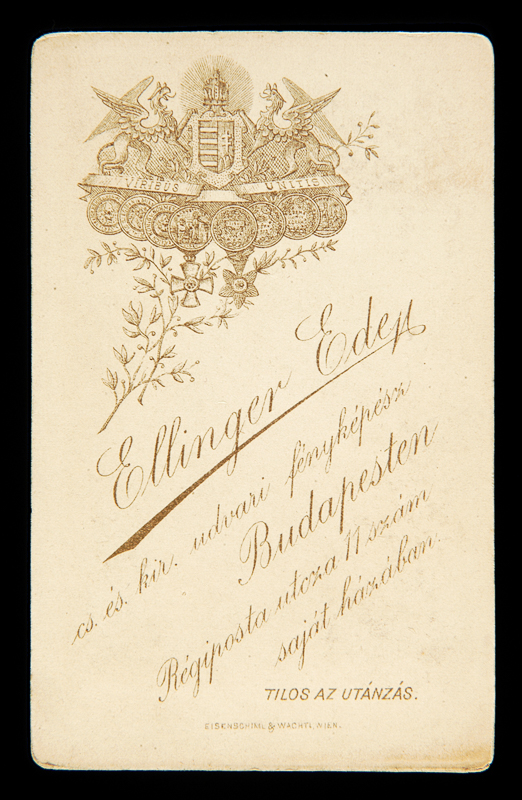 VIRIBUS UNITIS
Ellinger Ede
cs. és. kir. udvari fényképész
Budapesten
Régiposta utcza 11 szám
saját házában.
TILOS AZ UTÁNZÁS.
EISENSCHIML & WACHTL, WIEN.